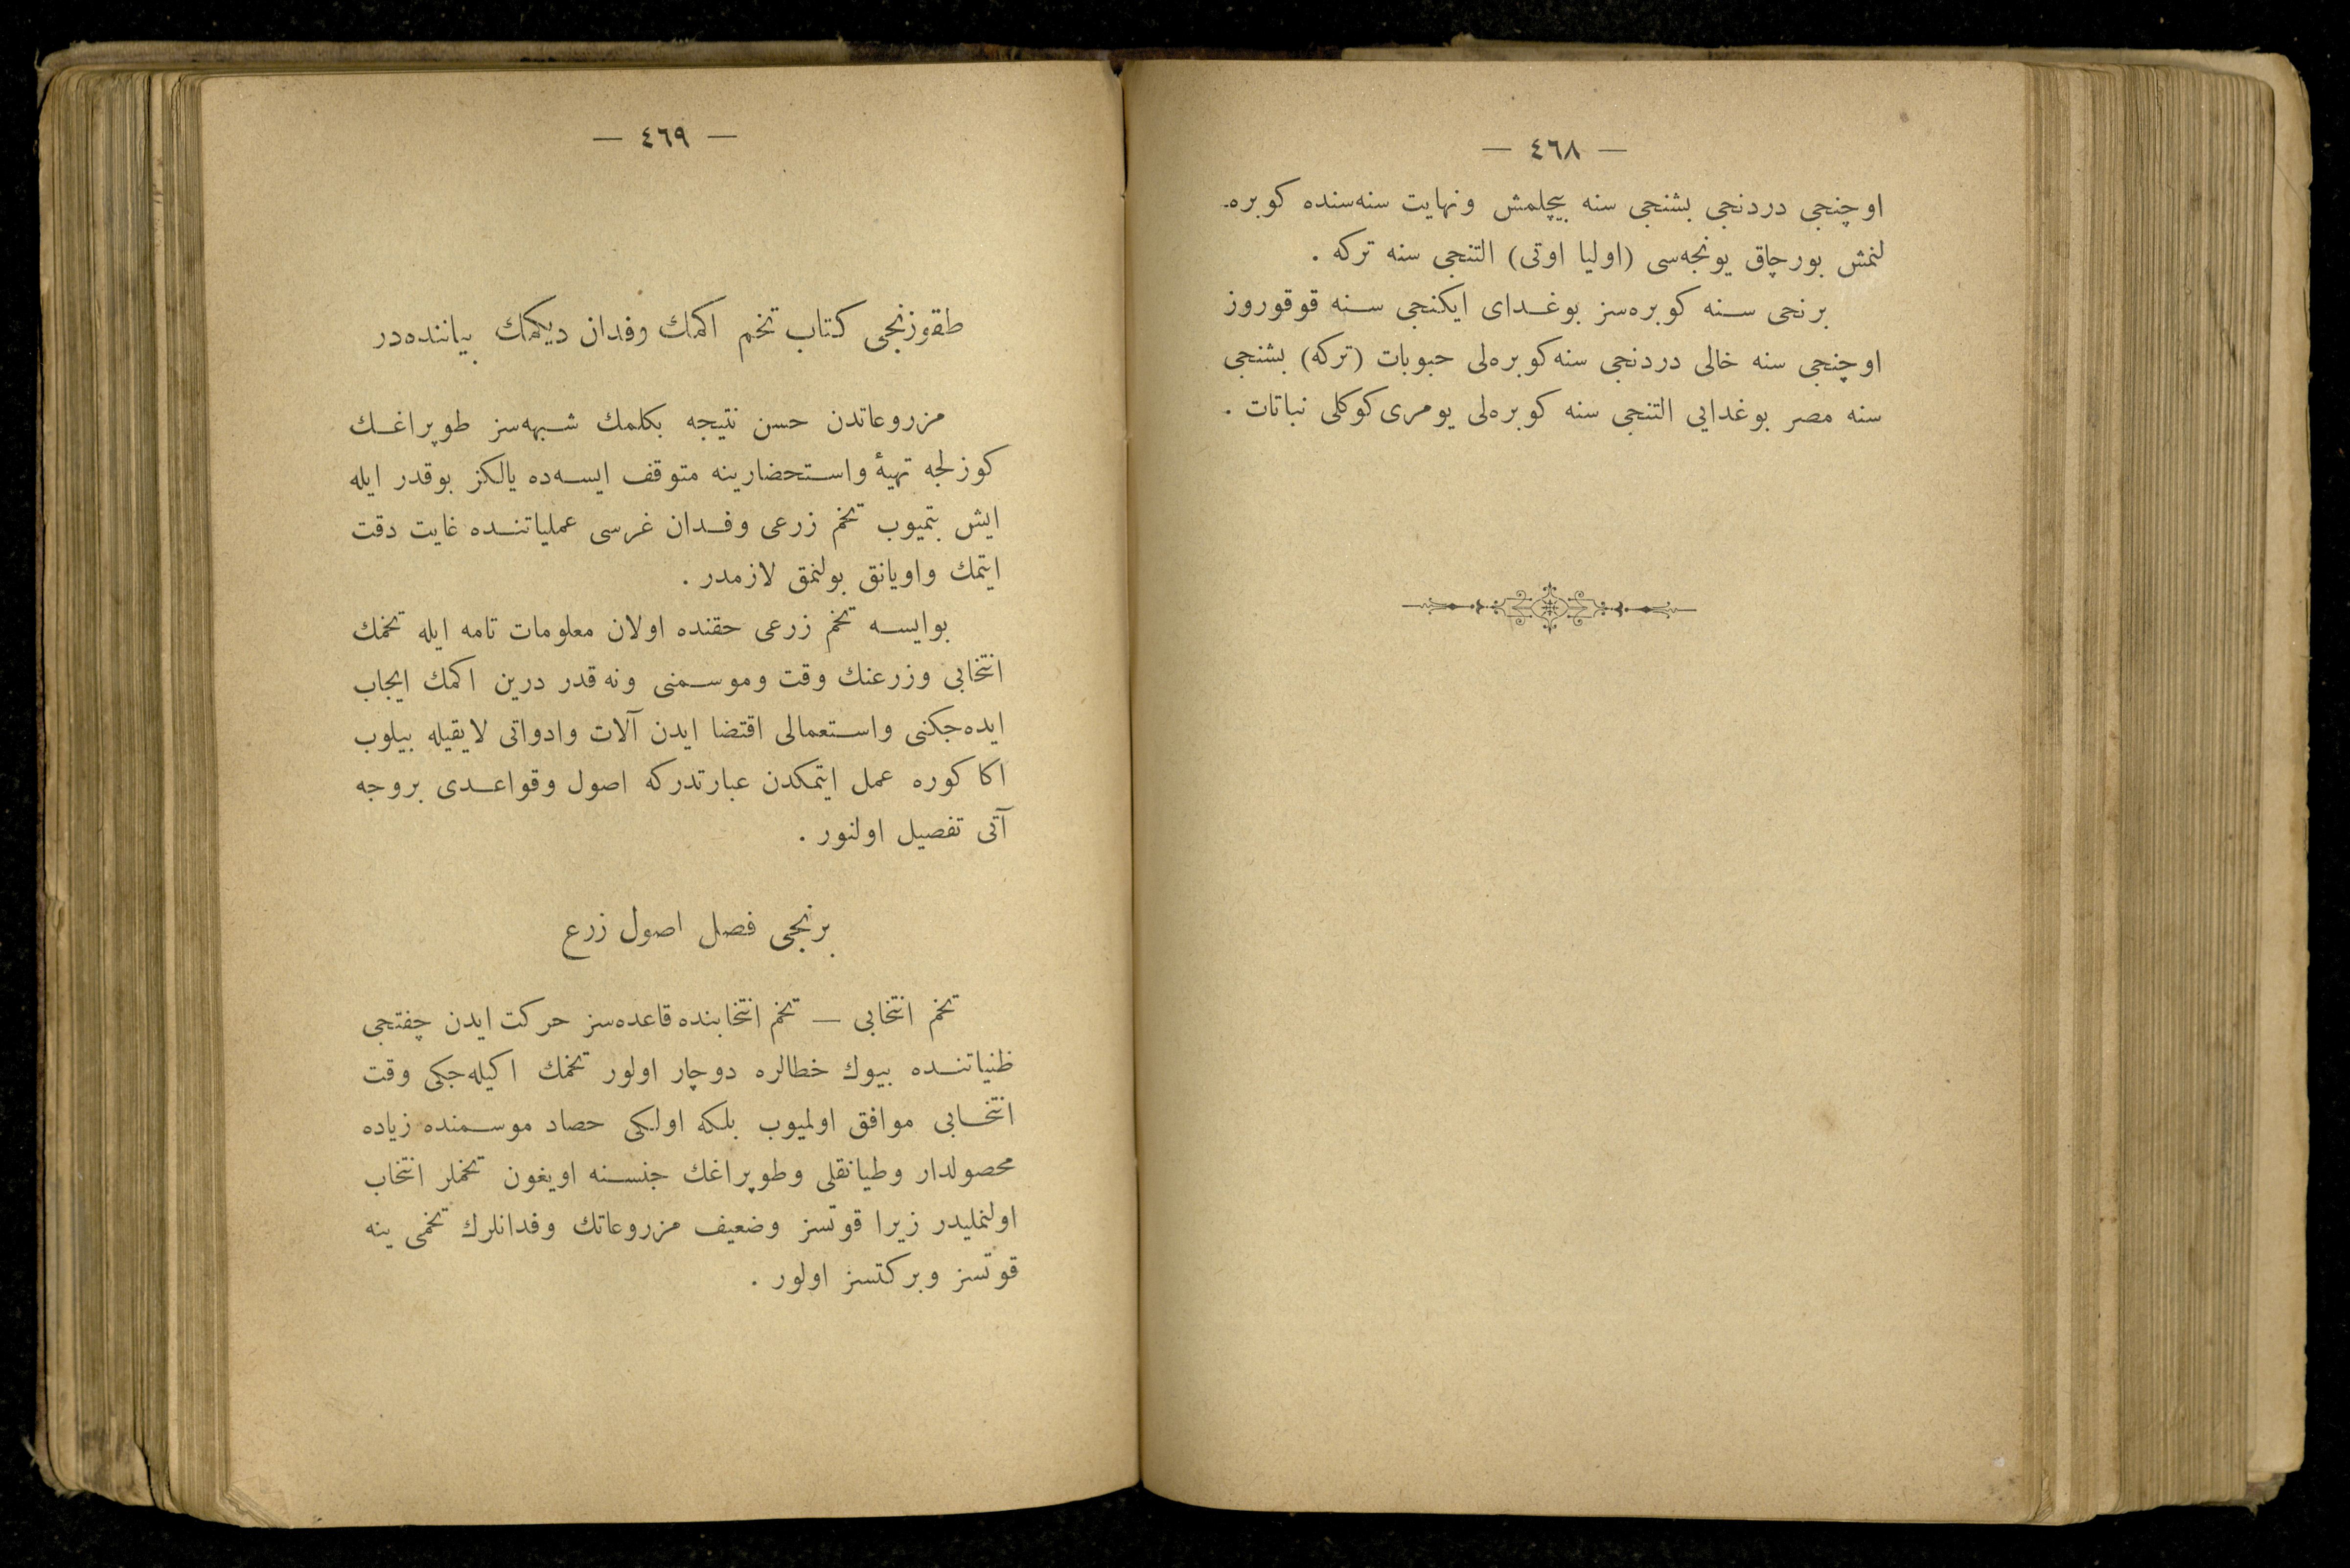 — ٤٦٨ —
اوچنجی دردنجی بشنجی سنه بیچلمش ونهایت سنه‌سنده کوبره‌ـ
لنمش بورچاق یونجه‌سی (اولیا اوتی) التنجی سنه ترکه .
برنجی سـنه کوبره‌سز بوغـدای ایکنجی سـنه قوقوروز
اوچنجی سنه خالی دردنجی سنه کوبره‌لی حبوبات (ترکه) بشنجی
سنه مصر بوغدایی التنجی سنه کوبره‌لی یومری کوکلی نباتات .
— ٤٦٩ —
طقوزنجی کتاب تخم اکمك وفدان دیکمك بیاننده‌در
مزروعاتدن حسن نتیجه بکلمك شـبهه‌سز طوپراغـك
کوزلجه تهیهٔ واسـتحضارینه متوقف ایسـه‌ده یالکز بوقدر ایله
ایش بتمیوب تخم زرعی وفـدان غرسی عملیاتنـده غایت دقت
ایتمك واویانق بولنمق لازمدر .
بوایسـه تخم زرعی حقنده اولان معلومات تامه ایله تخمك
انتخابی وزرعنك وقت وموسـمنی ونه قدر درین اکمك ایجاب
ایده‌جکنی واسـتعمالی اقتضا ایدن آلات وادواتی لایقیله بیلوب
اکا کوره عمل ایتمکدن عبارتدرکه اصول وقواعـدی بروجه
آتی تفصیل اولنور .
برنجی فصل اصول زرع
تخم انتخابی — تخم انتخابنده قاعده‌سز حرکت ایدن چفتجی
ظنیاتنـده بیوك خطالره دوچار اولور تخمك اکیله‌جکی وقت
انتخـابی موافق اولمیوب بلکه اولکی حصاد موسـمنده زیاده
محصولدار وطیانقلی وطوپراغك جنسـنه اویغون تخملر انتخاب
اولنملیدر زیرا قوتسز وضعیف مزروعاتك وفدانلرك تخمی ینه
قوتسز وبرکتسز اولور .